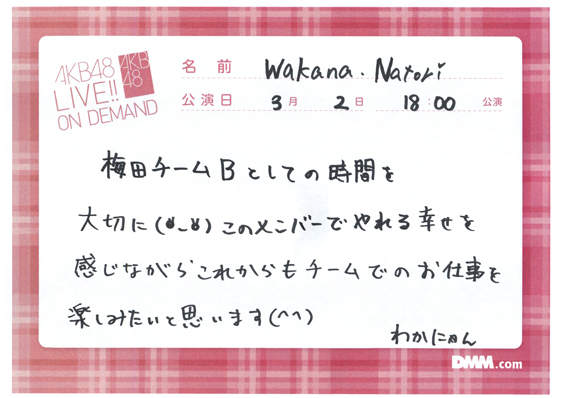 AKB48
LIVE!!
ON DEMAND
AKB
48
名前 Wakana.Natori
公演日 3月 2日 18:00 公演
梅田チームBとしての時間を
大切に(ʘ‿ʘ)このメンバーでやれる幸せを
感じながらこれからもチームでのお仕事を
楽しみたいと思います(^^)
わかにゃん
DMM.com